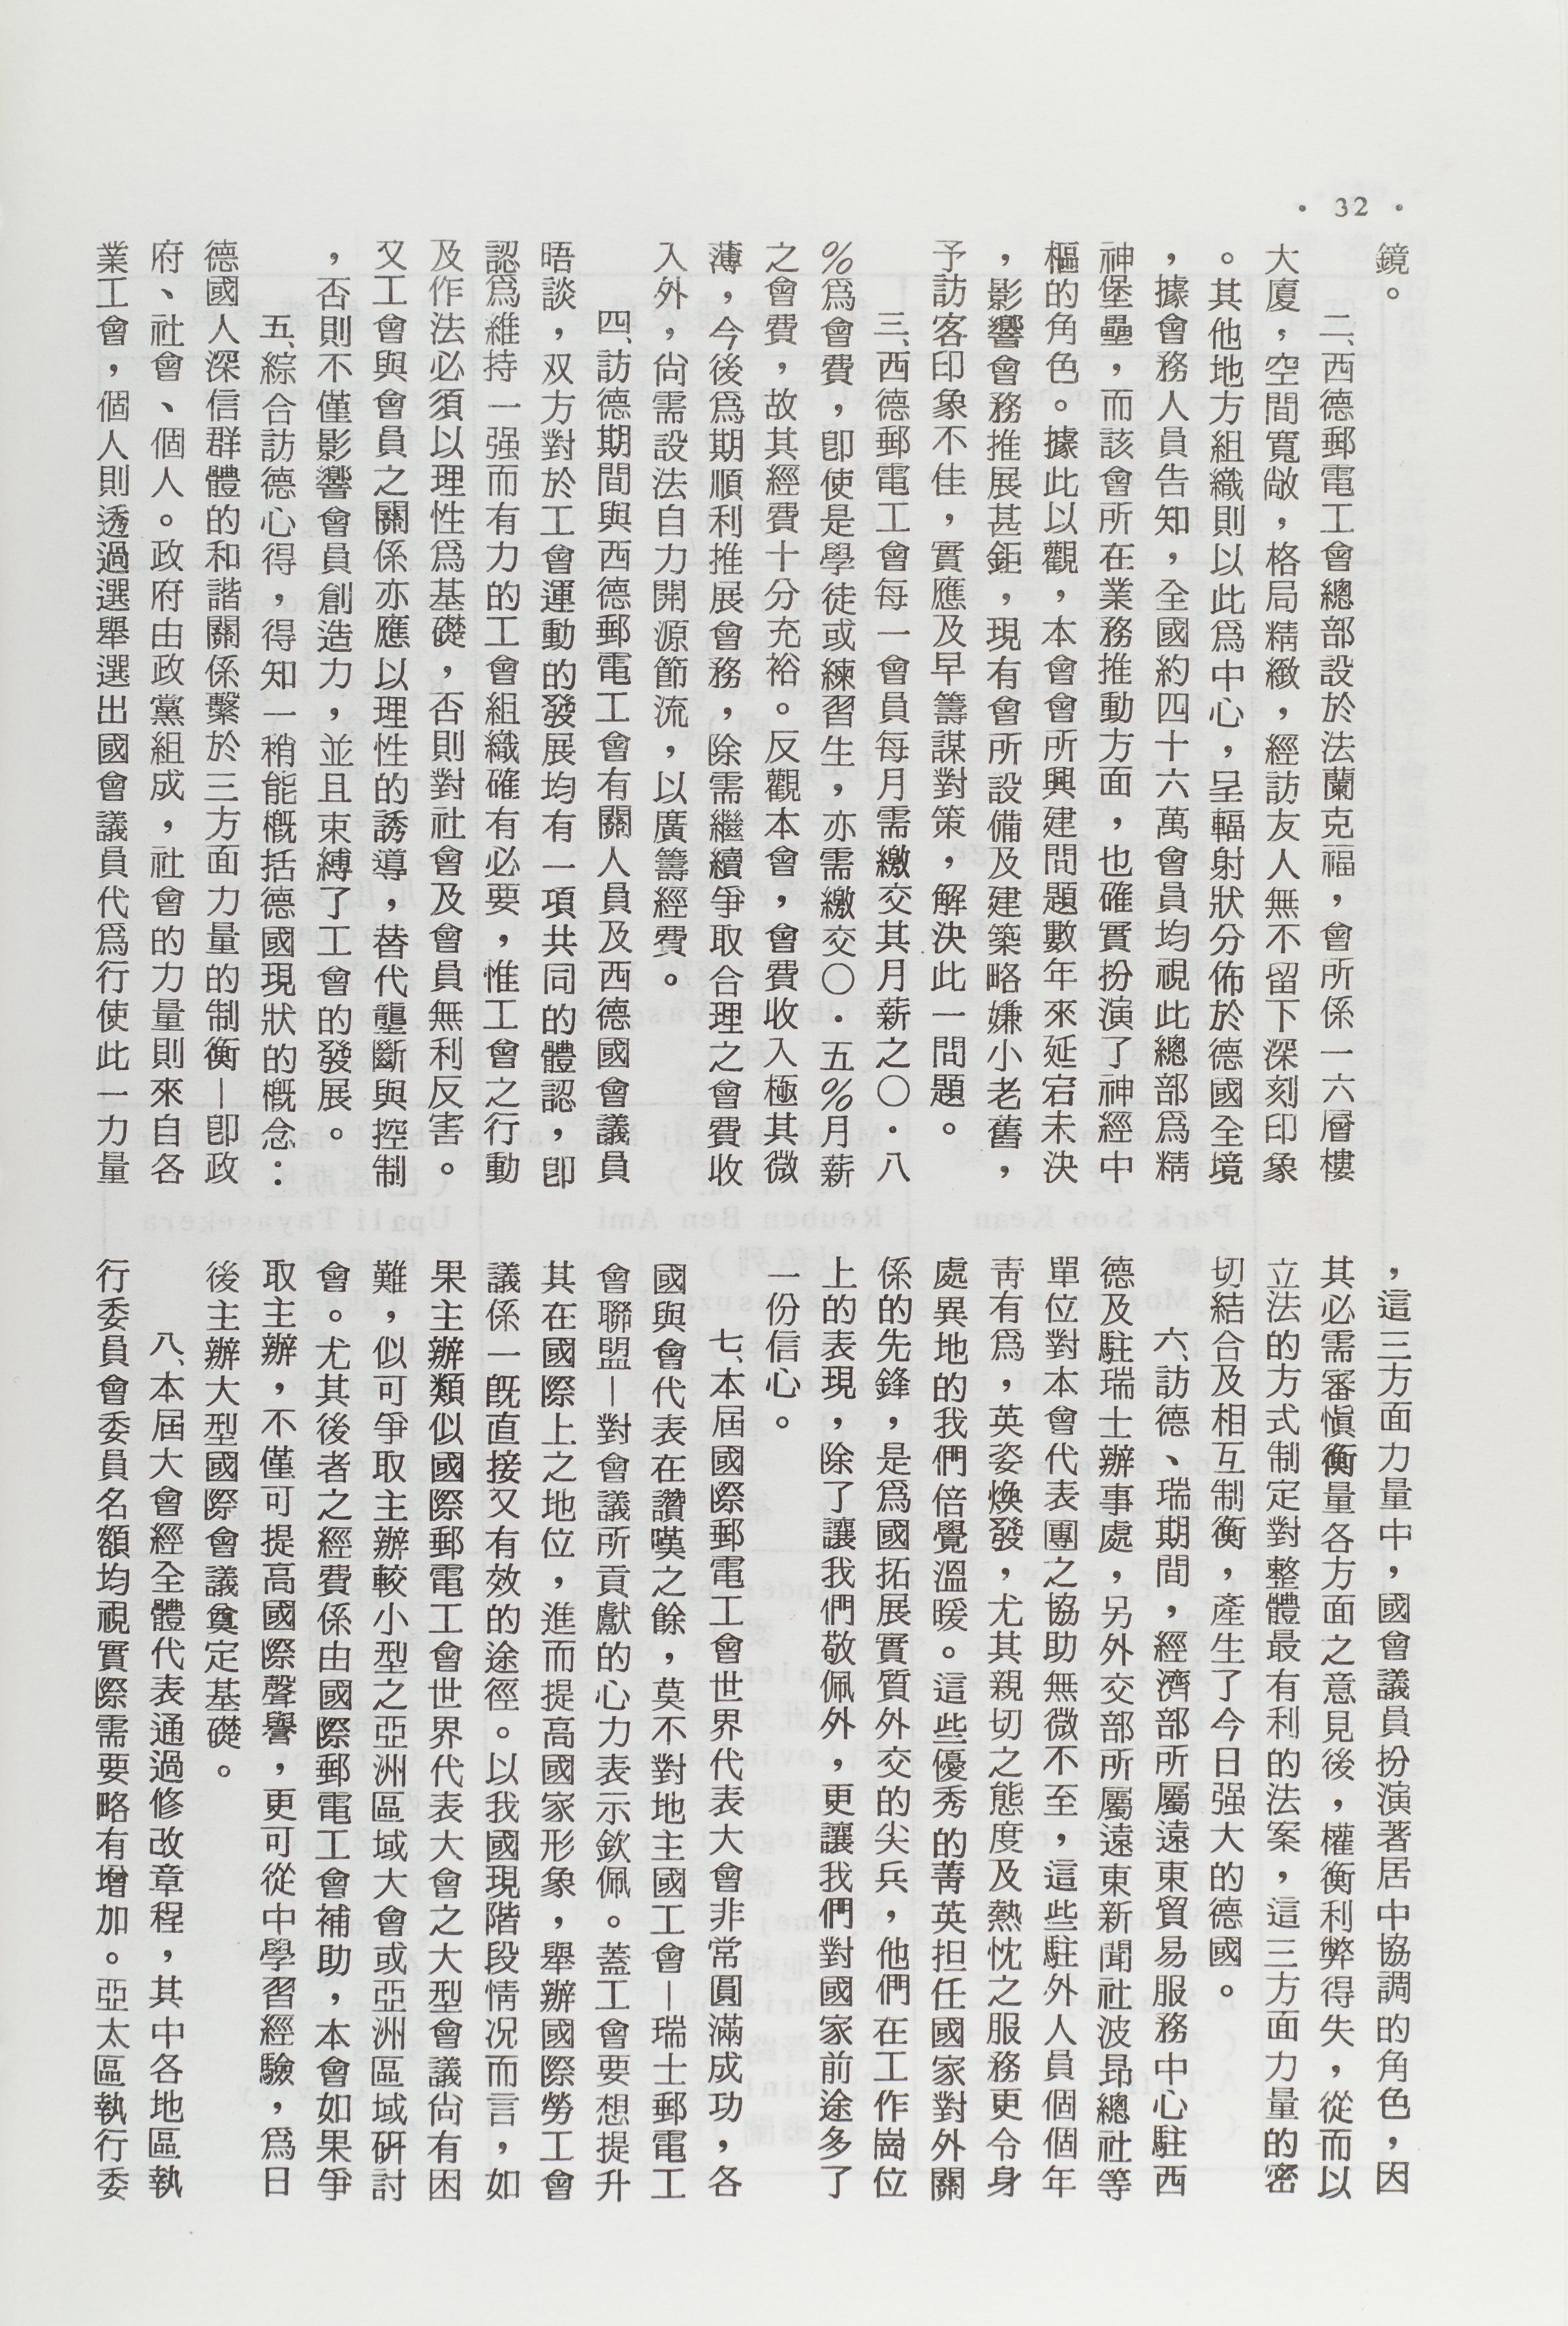 • 32 •
鏡。
二、西德郵電工會總部設於法蘭克福，會所係一六層樓
大廈，空間寬敞，格局精緻，經訪友人無不留下深刻印象
。其他地方組織則以此爲中心，呈輻射狀分佈於德國全境
，據會務人員告知，全國約四十六萬會員均視此總部爲精
神堡壘，而該會所在業務推動方面，也確實扮演了神經中
樞的角色。據此以觀，本會會所興建問題數年來延宕未決
，影響會務推展甚鉅，現有會所設備及建築略嫌小老舊，
予訪客印象不佳，實應及早籌謀對策，解決此一問題。
三、西德郵電工會每一會員每月需繳交其月薪之○．八
%爲會費，卽使是學徒或練習生，亦需繳交○．五%月薪
之會費，故其經費十分充裕。反觀本會，會費收入極其微
薄，今後爲期順利推展會務，除需繼續爭取合理之會費收
入外，尙需設法自力開源節流，以廣籌經費。
四、訪德期間與西德郵電工會有關人員及西德國會議員
晤談，双方對於工會運動的發展均有一項共同的體認，卽
認爲維持一强而有力的工會組織確有必要，惟工會之行動
及作法必須以理性爲基礎，否則對社會及會員無利反害。
又工會與會員之關係亦應以理性的誘導，替代壟斷與控制
，否則不僅影響會員創造力，並且束縛了工會的發展。
五、綜合訪德心得，得知一稍能槪括德國現狀的槪念：
德國人深信群體的和諧關係繫於三方面力量的制衡—卽政
府、社會、個人。政府由政黨組成，社會的力量則來自各
業工會，個人則透過選舉選出國會議員代爲行使此一力量
，這三方面力量中，國會議員扮演著居中協調的角色，因
其必需審愼衡量各方面之意見後，權衡利弊得失，從而以
立法的方式制定對整體最有利的法案，這三方面力量的密
切結合及相互制衡，產生了今日强大的德國。
六、訪德、瑞期間，經濟部所屬遠東貿易服務中心駐西
德及駐瑞士辦事處，另外交部所屬遠東新聞社波昂總社等
單位對本會代表團之協助無微不至，這些駐外人員個個年
靑有爲，英姿煥發，尤其親切之態度及熱忱之服務更令身
處異地的我們倍覺溫暖。這些優秀的菁英担任國家對外關
係的先鋒，是爲國拓展實質外交的尖兵，他們在工作崗位
上的表現，除了讓我們敬佩外，更讓我們對國家前途多了
一份信心。
七、本屆國際郵電工會世界代表大會非常圓滿成功，各
國與會代表在讚嘆之餘，莫不對地主國工會—瑞士郵電工
會聯盟—對會議所貢獻的心力表示欽佩。蓋工會要想提升
其在國際上之地位，進而提高國家形象，舉辦國際勞工會
議係一旣直接又有效的途徑。以我國現階段情況而言，如
果主辦類似國際郵電工會世界代表大會之大型會議尙有困
難，似可爭取主辦較小型之亞洲區域大會或亞洲區域硏討
會。尤其後者之經費係由國際郵電工會補助，本會如果爭
取主辦，不僅可提高國際聲譽，更可從中學習經驗，爲日
後主辦大型國際會議奠定基礎。
八、本屆大會經全體代表通過修改章程，其中各地區執
行委員會委員名額均視實際需要略有增加。亞太區執行委